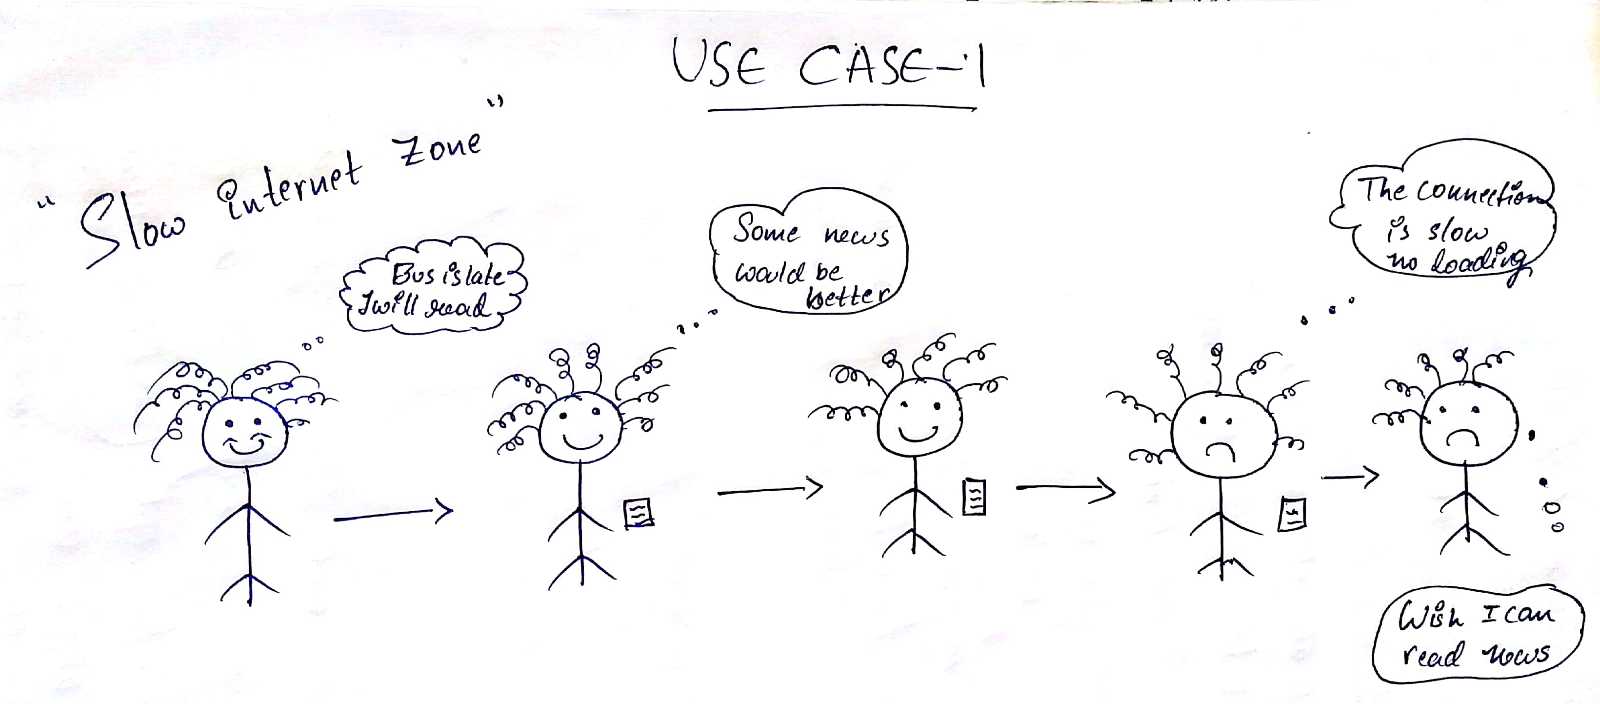 USE CASE-1
"Slow internet Zone"
Bus is late
I will read
Some news
would be
better
The connection
is slow
no loading
Wish I can
read news